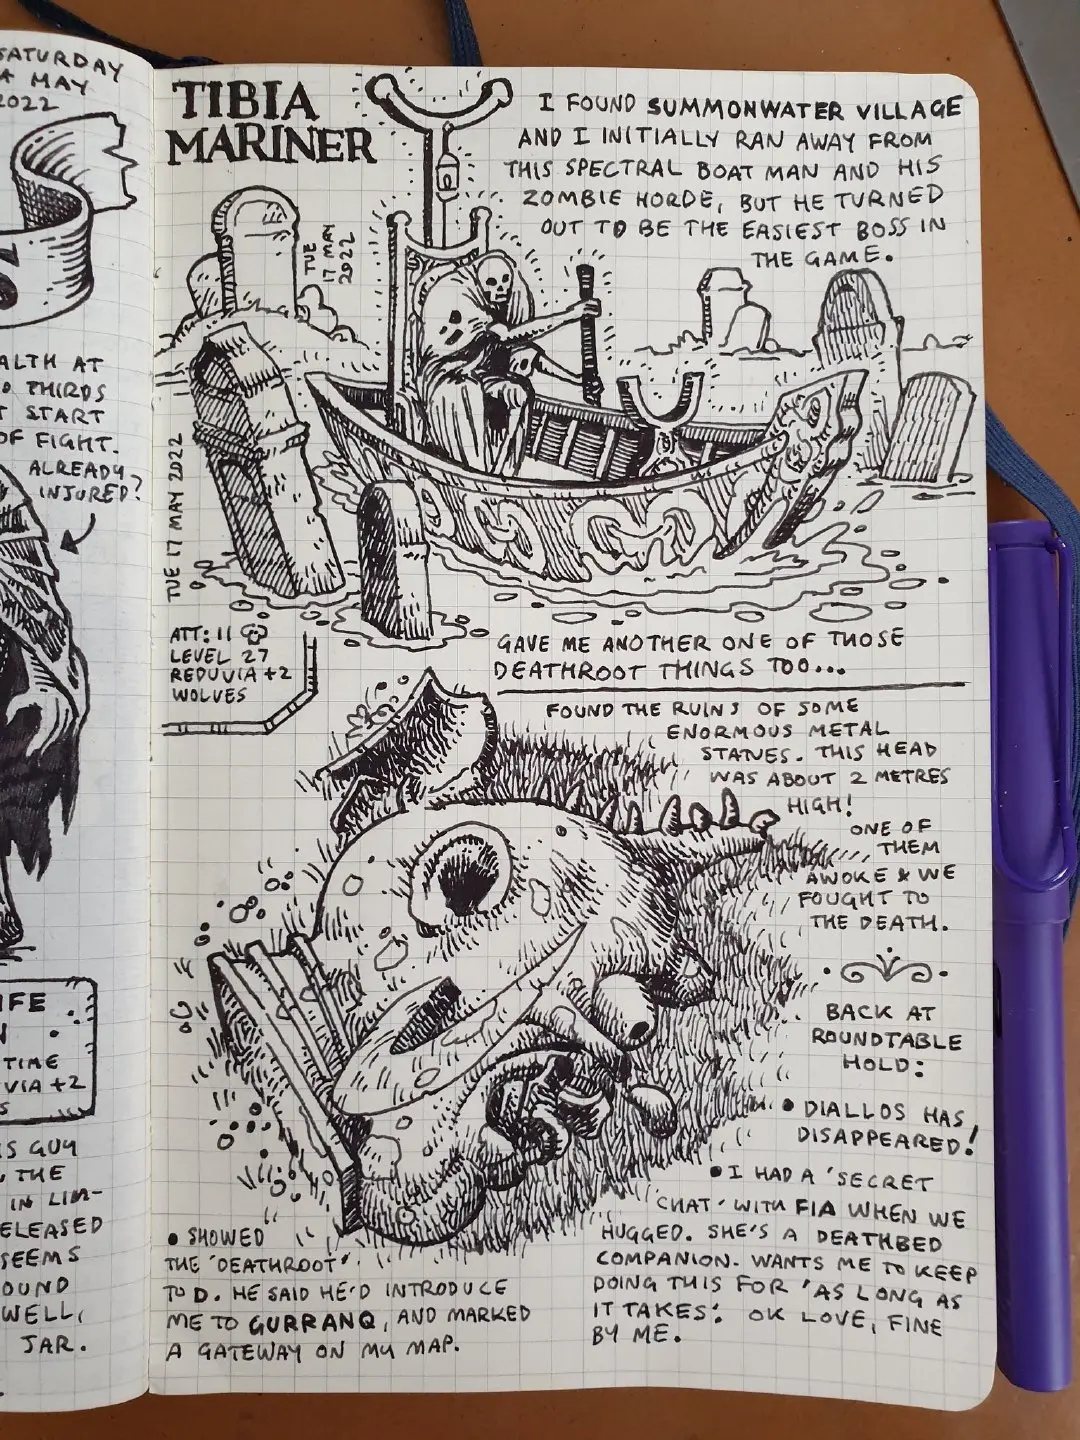 SATURDAY
MAY
2022
ALTH AT
THIRDS
START
OF FIGHT.
ALREADY
INJURED?
IFE
TIME
VIA +2
IS GUY
THE
IN LIM-
ELEASED
SEEMS
OUND
WELL,
JAR.
TIBIA
MARINER
I FOUND SUMMONWATER VILLAGE
AND I INITIALLY RAN AWAY FROM
THIS SPECTRAL BOAT MAN AND HIS
ZOMBIE HORDE, BUT HE TURNED
OUT TO BE THE EASIEST BOSS IN
THE GAME.
TUE
17 MAY
2022
TUE 17 MAY 2022
ATT: 11
LEVEL 27
REDUVIA +2
WOLVES
GAVE ME ANOTHER ONE OF THOSE
DEATHROOT THINGS TOO...
FOUND THE RUINS OF SOME
ENORMOUS METAL
STATUES. THIS HEAD
WAS ABOUT 2 METRES
HIGH!
ONE OF
THEM
AWOKE & WE
FOUGHT TO
THE DEATH.
BACK AT
ROUNDTABLE
HOLD:
• DIALLOS HAS
DISAPPEARED!
• I HAD A 'SECRET
CHAT' WITH FIA WHEN WE
HUGGED. SHE'S A DEATHBED
COMPANION. WANTS ME TO KEEP
DOING THIS FOR 'AS LONG AS
IT TAKES'. OK LOVE, FINE
BY ME.
• SHOWED
THE 'DEATHROOT'
TO D. HE SAID HE'D INTRODUCE
ME TO GURRANQ, AND MARKED
A GATEWAY ON MY MAP.